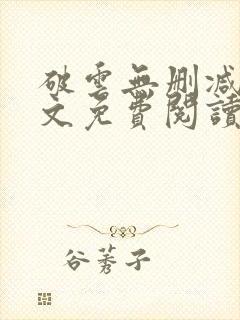 破雲無刪减
文免費閱讀
谷莠子